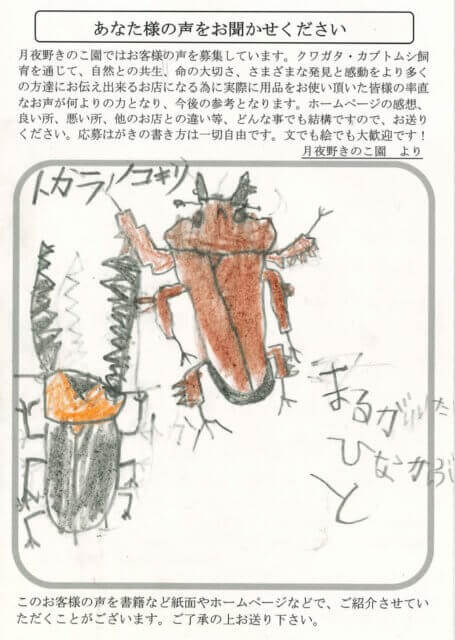 あなた様の声をお聞かせください
月夜野きのこ園ではお客様の声を募集しています。クワガタ・カブトムシ飼
育を通じて、自然との共生、命の大切さ、さまざまな発見と感動をより多く
の方達にお伝え出来るお店になる為に実際に用品をお使い頂いた皆様の率直
なお声が何よりの力となり、今後の参考となります。ホームページの感想、
良い所、悪い所、他のお店との違い等、どんな事でも結構ですので、お送り
ください。応募はがきの書き方は一切自由です。文でも絵でも大歓迎です！
月夜野きのこ園　より
トカラノコギリ
まるが
ひなかぶ
と
このお客様の声を書籍など紙面やホームページなどで、ご紹介させてい
ただくことがございます。ご了承の上お送り下さい。